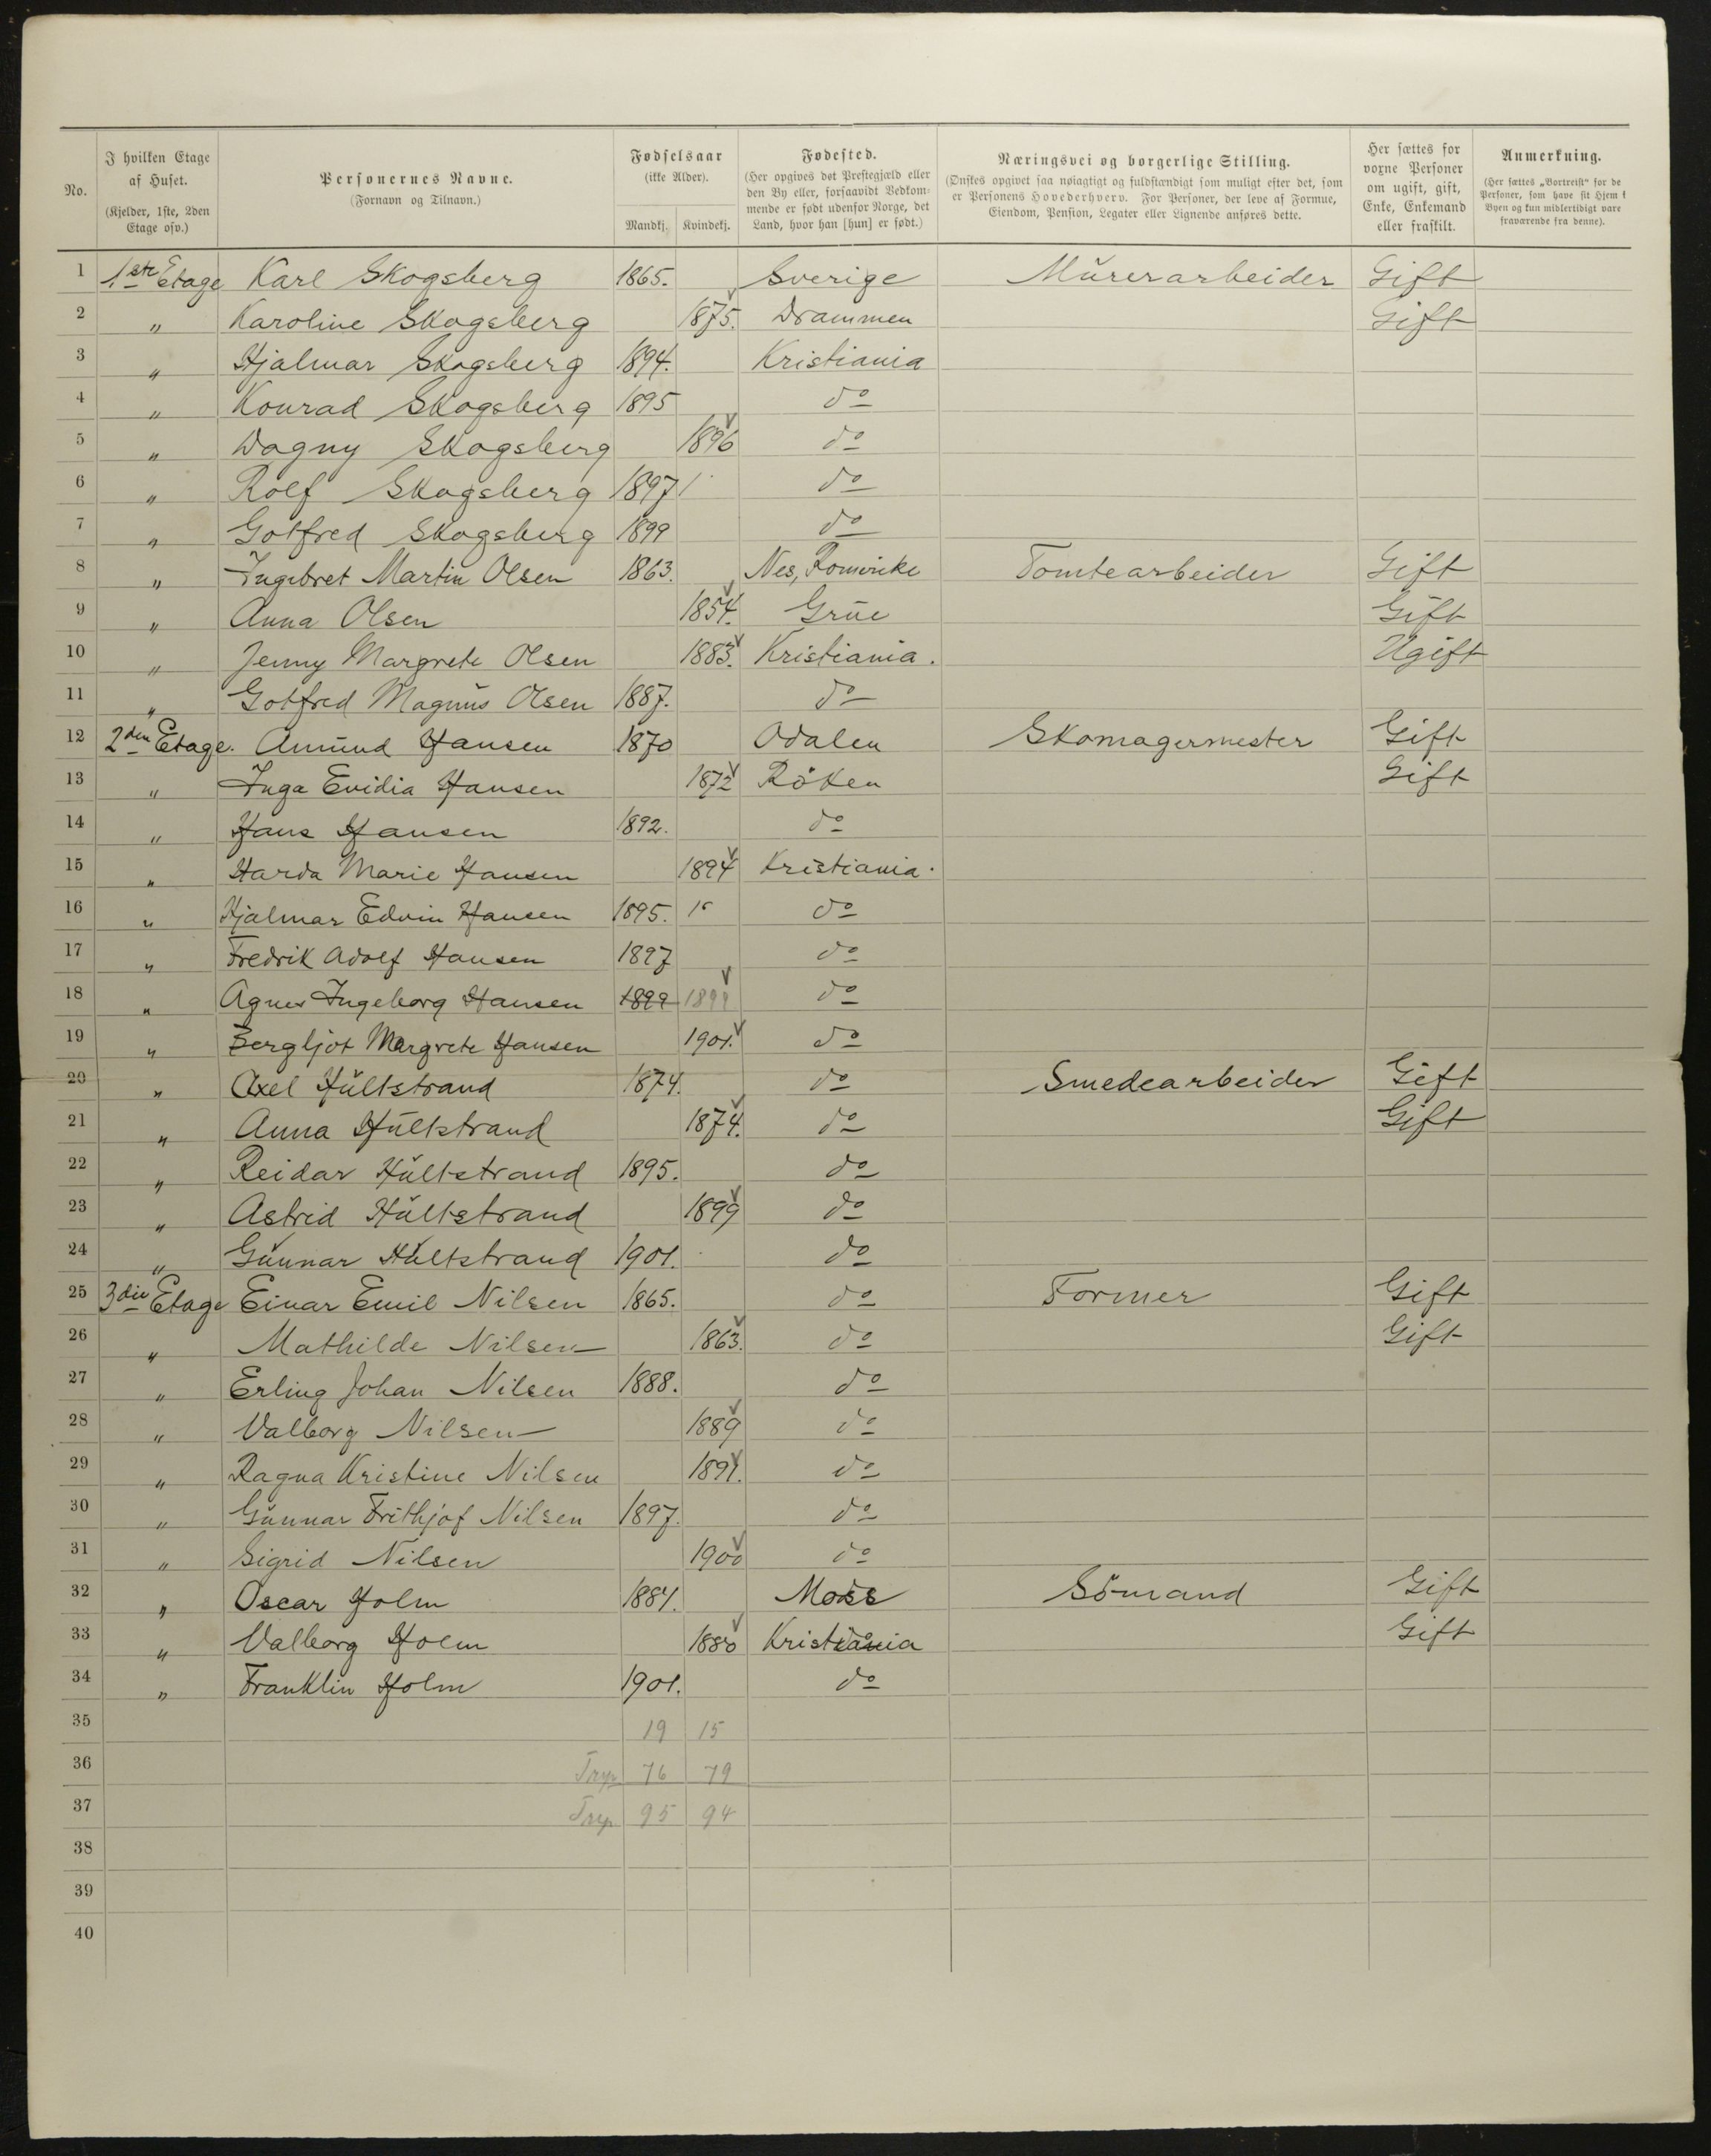 No.
I hvilken Etage af Huset.
(Kjelder, 1ste, 2den Etage osv.)
Personernes Navne.
(Fornavn og Tilnavn.)
Fødselsaar
(ikke Alder).
Mandkj. Kvindekj.
Fødested.
(Her opgives det Prestegjæld eller den By eller, forsaavidt Vedkommende er født udenfor Norge, det Land, hvor han [hun] er født.)
Næringsvei og borgerlige Stilling.
(Ønskes opgivet saa nøiagtigt og fuldstændigt som muligt efter det, som er Personens Hovederhverv. For Personer, der leve af Formue, Eiendom, Pension, Legater eller Lignende anføres dette.
Her sættes for voxne Personer om ugift, gift, Enke, Enkemand eller fraskilt.
Anmerkning.
(Her sættes „Bortreist" for de Personer, som have sit Hjem i Byen og kun midlertidigt være fraværende fra denne).
1 1ste Etage Karl Skogsberg 1865. Sverige Mŭrerarbeider Gift
2 " Karoline Skogsberg 1875. Drammen Gift
3 " Hjalmar Skogsberg 1894. Kristiania
4 " Konrad Skogsberg 1895 do
5 " Dagny Skogsberg 1896 do
6 " Rolf Skogsberg 1897 do
7 " Gotfred Skogsberg 1899 do
8 " Ingebret Martin Olsen 1863. Nes, Romerike Tomtearbeider Gift
9 " Anna Olsen 1854. Grŭe Gift
10 " Jenny Margrete Olsen 1883. Kristiania. Ugift
11 " Gotfred Magnŭs Olsen 1887. do
12 2den Etage. Amŭnd Hansen 1870 Odalen Skomagermester Gift
13 " Inga Evidia Hansen 1872 Röken Gift
14 " Hans Hansen 1892. do
15 " Harda Marie Hansen 1894 Kristiania.
16 " Hjalmar Edvin Hansen 1895. do
17 " Fredrik Adolf Hansen 1897 do
18 " Agnes Ingeborg Hansen 1899 1899 do
19 " Bergljot Margrete Hansen 1901. do
20 " Axel Hŭltstrand 1874. do Smedearbeider Gift
21 " Anna Hŭltstrand 1874. do Gift
22 " Reidar Hŭltstrand 1895. do
23 " Astrid Hŭltstrand 1899 do
24 " Gŭnnar Hŭltstrand 1901. do
25 3die Etage Einar Emil Nilsen 1865. do Former Gift
26 " Mathilde Nilsen 1863. do Gift
27 " Erling Johan Nilsen 1888. do
28 " Valborg Nilsen 1889 do
29 " Ragna Kristine Nilsen 1891. do
30 " Gŭnnar Frithjof Nilsen 1897. do
31 " Sigrid Nilsen 1900 do
32 " Oscar Holm 1881. Moss Sömand Gift
33 " Valborg Holm 1880 Kristiania Gift
34 " Franklin Holm 1901. do
35 19 15
36 76 79
37 95 94
38
39
40